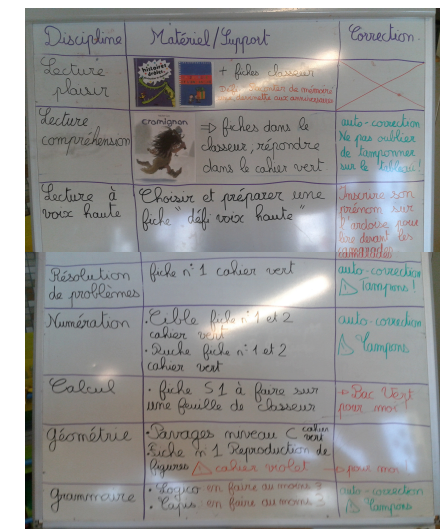 Discipline Matériel/Support Correction.
Lecture-plaisir
+ fiches classeur
Lecture compréhension
cromignon
⇒ fiches dans le
classeur, répondre
dans le cahier vert.
auto-correction
Ne pas oublier
de tamponner
sur le tableau!
Lecture à
voix haute
Choisir et préparer une
fiche "défi voix haute"
Inscrire son
prénom sur
l'ardoise pour
lire devant les
camarades
Résolution
de problèmes
fiche n°1 cahier vert
auto-correction
⚠ Tampons!
Numération
• Cible fiche n°1 et 2
cahier vert
• Ruche fiche n°1 et 2
cahier vert
auto-correction
⚠ Tampons
Calcul
• fiche S1 à faire sur
une feuille de classeur
→ Bac Vert
pour moi!
géométrie
• Pavages niveau C cahier vert
• Fiche n 1 Reproduction de
figures ⚠ cahier violet → pour moi!
grammaire
• Logico en faire au moins 3
• en faire au moins 3
auto-correction
⚠ Tampons